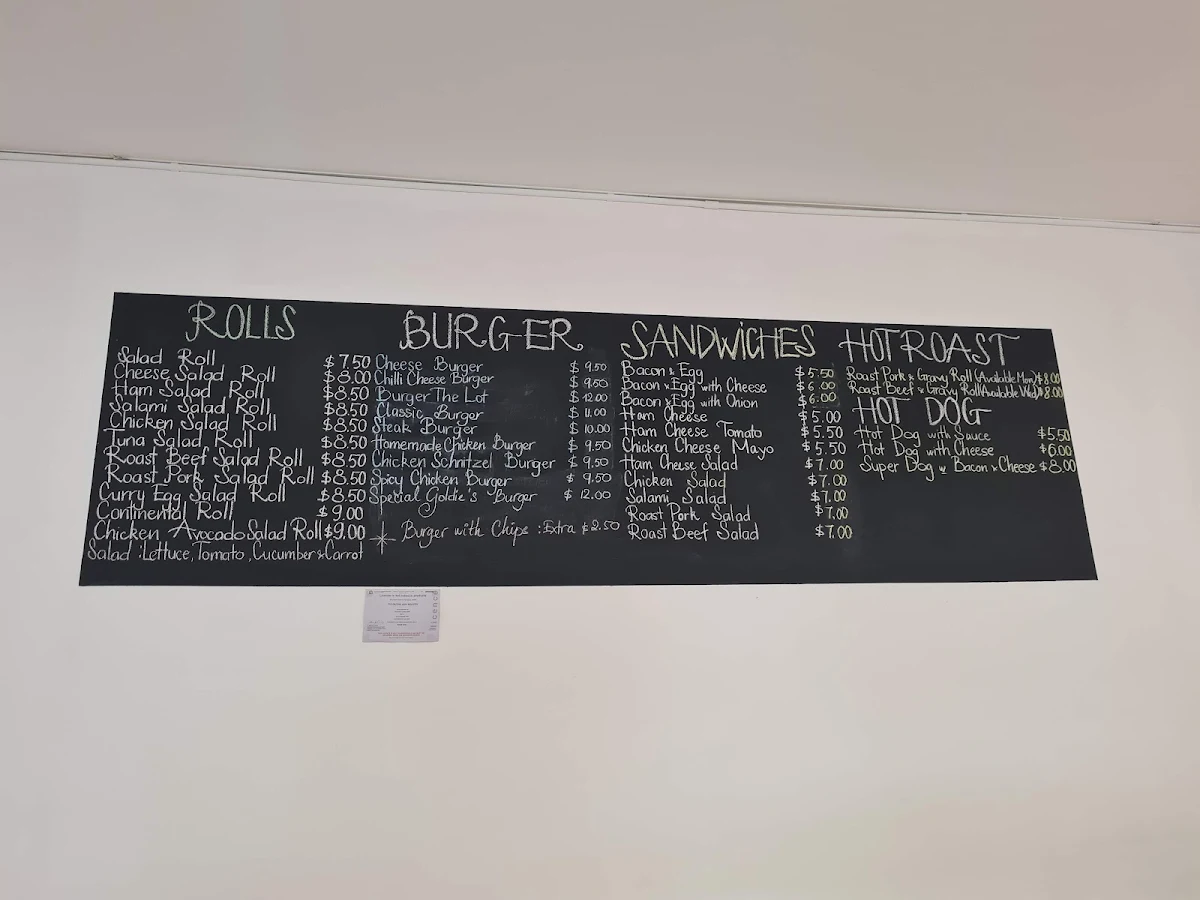 ROLLS
Salad Roll $7.50
Cheese Salad Roll $8.00
Ham Salad Roll $8.50
Salami Salad Roll $8.50
Chicken Salad Roll $8.50
Tuna Salad Roll $8.50
Roast Beef Salad Roll $8.50
Roast Pork Salad Roll $8.50
Curry Egg Salad Roll $8.50
Continental Roll $9.00
Chicken Avocado Salad Roll $9.00
Salad : Lettuce, Tomato, Cucumber & Carrot
BURGER
Cheese Burger $ 9.50
Chilli Cheese Burger $ 9.50
Burger The Lot $ 12.00
Classic Burger $ 11.00
Steak Burger $ 10.00
Homemade Chicken Burger $ 9.50
Chicken Schnitzel Burger $ 9.50
Spicy Chicken Burger $ 9.50
Special Goldie's Burger $ 12.00
Burger with Chips : Extra $2.50
SANDWiCHES
Bacon & Egg $5.50
Bacon & Egg with Cheese $6.00
Bacon & Egg with Onion $6.00
Ham Cheese $5.00
Ham Cheese Tomato $5.50
Chicken Cheese Mayo $5.50
Ham Cheese Salad $7.00
Chicken Salad $7.00
Salami Salad $7.00
Roast Pork Salad $7.00
Roast Beef Salad $7.00
HOT ROAST
Roast Pork & Gravy Roll (Available Mon) $8.00
Roast Beef & Gravy Roll (Available Wed) $8.00
HOT DOG
Hot Dog with Sauce $5.50
Hot Dog with Cheese $6.00
Super Dog w Bacon & Cheese $8.00